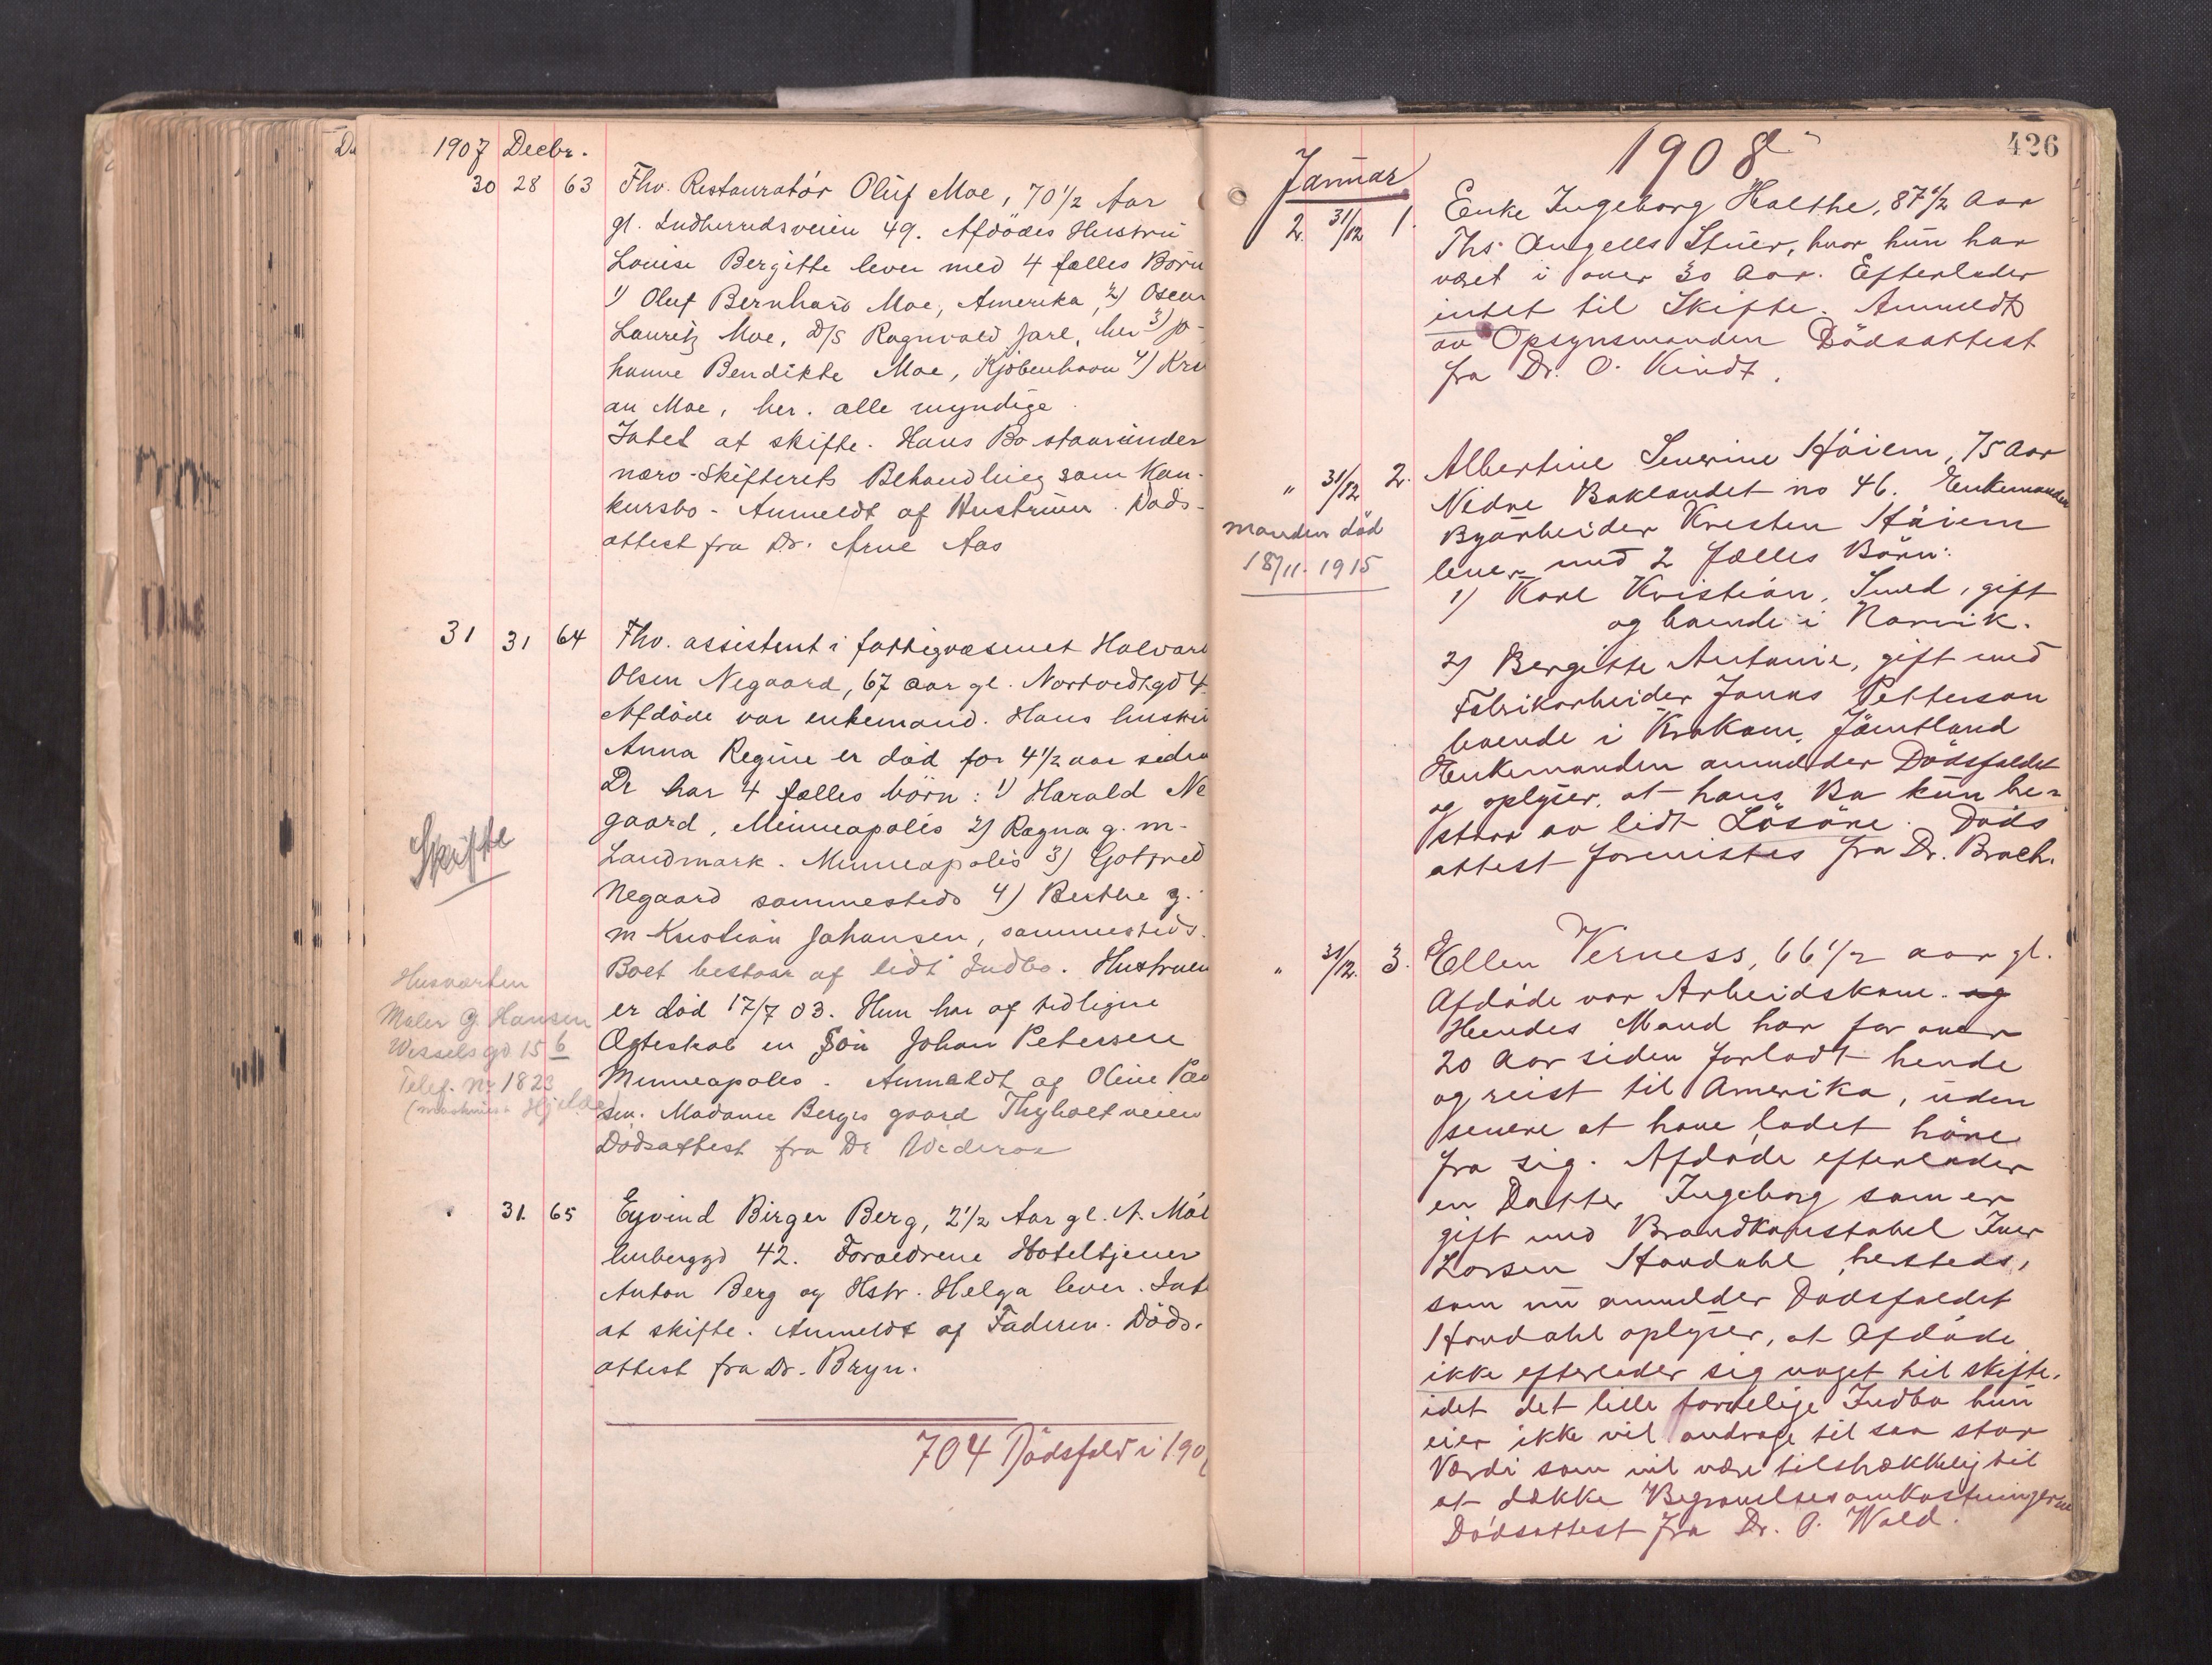 1907 Decbr.
30 28 63 Fhv. Restauratör Oluf Moe, 70 1/2 Aar
gl. Indherredsveien 49. Afdödes Hustru
Louise Bergitte lever med 4 fælles Börn
1) Oluf Bernhard Moe, Amerika, 2) Oscar
Lauritz Moe, D/S Ragnvald Jarl, her 3) Jo-
hanne Bendikte Moe, Kjöbenhavn 4) Kri
an Moe, her. alle myndige.
Intet at skifte. Hans Bo staar under
nærv. Skifterets Behandling som Kon-
kursbo - Anmeldt af Hustruen. Döds-
attest fra Dr. Arne Aas
31 31 64 Fhv. assistent i fattigvæsenet Halvard
Olsen Negaard, 67 aar gl. 4.
Afdöde var enkemand. Hans hustru
Anna Regine er död for 4 1/2 aar siden
De har 4 fælles börn: 1) Harald Ne
gaard, Minneapolis 2) Ragna g. m.
Landmark. Minneapolis 3) Gotfred
Negaard sammesteds 4) Berthe g.
m Kristian Johansen, sammesteds.
Skifte
Boet bestaar af lidt Indbo. Hustruen
er död 17/7 03. Hun har af tidligere
Ægteskab en Sön Johan Petersen
Minneapolis. Anmeldt af Oline
sen. Madame Berges gaard Thyholtveien
Dödsattest fra Dr Wideröe
Husværten
Maler G. Hansen
Wesselsgd 15 b
Telef. Nr 1823
31. 65 Eyvind Birger Berg, 2 1/2 Aar gl. N. Möl
lenberggd 42. Forældrene Hoteltjener
Anton Berg og Hstr. Helga lever. Int
at skifte. Anmeldt af Faderen. Döds-
attest fra Dr. Bryn.
704 Dödsfald i 190
426
1908
Januar
2. 31/12 1. Enke Ingeborg Holthe, 87 1/2 Aar
Ths. Angells Stuer, hvor hun har
været i over 30 Aar. Efterlader
intet til Skifte. Anmeldt
av Opsynsmanden Dödsattest
fra Dr. O. Kindt.
" 31/12 2. Albertine Severine Höiem, 75 Aar
Nedre Baklandet no 46. Enkemanden
Byarbeider Kresten Höiem
lever med 2 fælles Börn:
manden död
18/11. 1915
1) Karl Kristian, Smed, gift
og boende i Narvik.
2) Bergitte Antonie, gift med
Fabrikarbeider Jonas Petterson
boende i Krokom, Jämtland
Enkemanden anmelder Dödsfaldet
og oplyser, at hans Bo kun be-
staar av lidt Lösöre. Döds
attest forevistes fra Dr. Brach.
" 31/12. 3. Ellen Verness, 66 1/2 aar gl.
Afdöde var Arbeidskone. og
Hendes Mand har for over
20 Aar siden forladt hende
og reist til Amerika, uden
senere at have ladet höre
fra sig. Afdöde efterlader
en Datter Ingeborg som er
gift med Brandkonstabel Iver
Larsen Hovdahl hersteds,
som nu anmelder Dödsfaldet
Hovdahl oplyser, at Afdöde
ikke efterlader sig noget til skifte,
idet det lille farvelige Indbo hun
eier ikke vil andrage til saa stor
Værdi som vil være tilstrækkelig til
at dække Begravelsesomkostningerne
Dödsattest fra Dr. P. Wold.